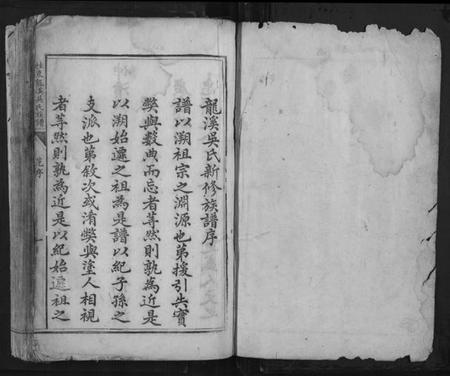 龍溪吳氏新修族譜序
譜以溯祖宗之淵源也弟援引失實
弊與數典而忘者等然則孰為近是
以溯始遷之祖為是譜以紀子孫之
支派也弟敘次或淆弊與塗人相視
者等然則孰為近是以紀始遷祖之